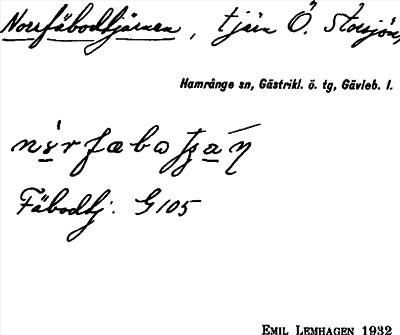 Norrfäbodtjärnen, tjärn Ö. Storsjön,
Hamrånge sn, Gästrikl. ö. tg, Gävleb. l.
Fäbodtj. G105
EMIL LEMHAGEN 1932